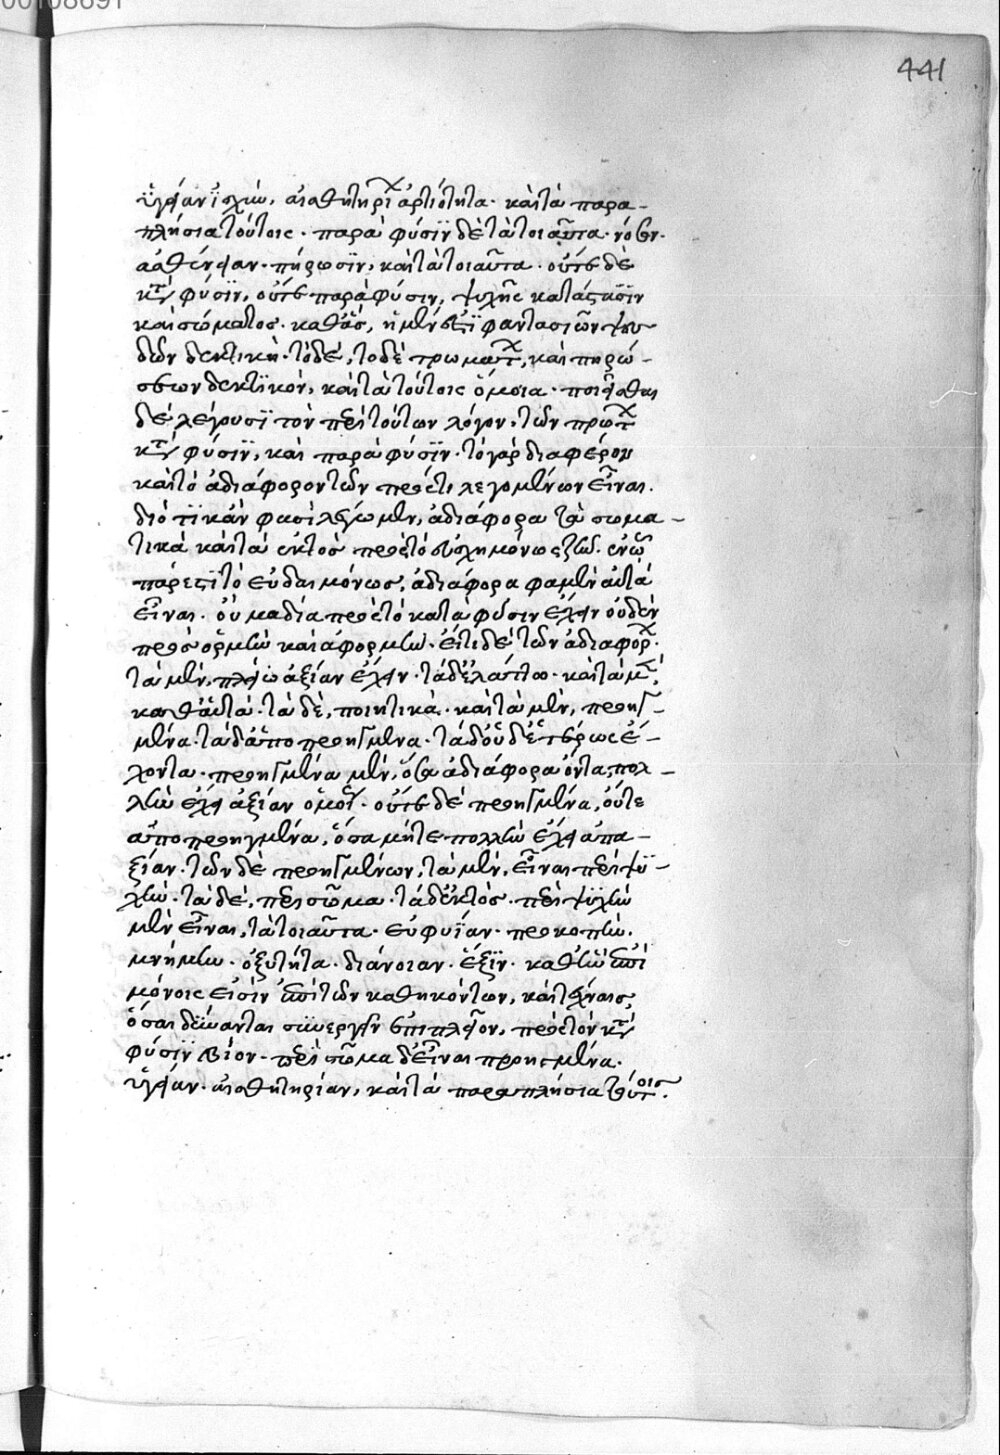 00108691
441
ὑγείαν ἰσχὺν, αἰσθητηρί ἀρτιότητα· καὶ τὰ παρα-
πλήσια τούτοις· παρὰ φύσιν δὲ τὰ τοιαῦτα· νόσον·
ἀσθένειαν· πήρωσιν, καὶ τὰ τοιαῦτα· οὔτε δὲ
κατὰ φύσιν, οὔτε παρὰ φύσιν, ψυχῆς κατάστασιν
καὶ σώματος· καθ' ἃς, ἡ μὲν ἐστὶ φαντασιῶν ψευ
δῶν δεκτικὴ· τὸδὲ, τὸ δὲ τρωμάτ, καὶ πηρώ-
σεων δεκτικὸν, καὶ τὰ τούτοις ὅμοια· ποιεῖσθαι
δὲ λέγουσι τὸν περὶ τούτων λόγον, τῶν πρώτ
κατὰ φύσιν, καὶ παρὰ φύσιν· τὸ γὰρ διαφέρον
καὶ τὸ ἀδιάφορον τῶν πρός τι λεγομένων εἶναι·
διό τι κἂν φασὶ λέγωμεν, ἀδιάφορα τὰ σωμα-
τικὰ καὶ τὰ ἐκτὸς πρὸς τὸ εὐσχημόνως ζῆν· ἐν ᾧ
πάρεστι τὸ εὐδαιμόνως, ἀδιάφορα φαμὲν αὐτὰ
εἶναι· οὐ μα δία πρὸς τὸ κατὰ φύσιν ἔχειν οὐδὲν
πρὸς ὁρμὴν καὶ ἀφορμὴν· ἔτι δὲ τῶν ἀδιαφόρ·
τὰ μὲν, πλείω ἀξίαν ἔχειν· τὰ δ' ἐλάττω· καὶ τὰ μ,
καθ' αὑτὰ· τὰ δὲ, ποιητικὰ· καὶ τὰ μὲν, προηγ-
μένα· τὰ δ' ἀποπροηγμένα· τὰ δ' οὐδετέρως ἔ-
χοντα· προηγμένα μὲν, ὅσα ἀδιάφορα ὄντα, πολ-
λὴν ἔχει ἀξίαν ὁμοί· οὔτε δὲ προηγμένα, οὔτε
ἀποπροηγμένα, ὅσα μήτε πολλὴν ἔχει ἀπα-
ξίαν· τῶν δὲ προηγμένων, τὰ μὲν, εἶναι περὶ ψυ-
χὴν· τὰ δὲ, περὶ σῶμα· τὰ δ' ἐκτὸς· περὶ ψυχὴν
μὲν εἶναι, τὰ τοιαῦτα· εὐφυΐαν· προκοπὴν·
μνήμην· ὀξυτῆτα· διάνοιαν· ἕξιν· καθ' ἣν ἐπὶ
μόνοις εἰσὶν ἐπὶ τῶν καθηκόντων, καὶ τέχναις,
ὅσαι δύνανται συνεργεῖν ἐπιπλεῖον, πρὸς τὸν κατὰ
φύσιν βίον· περὶ σῶμα δ' εἶναι προηγμένα·
ὑγείαν· αἰσθητηρίαν, καὶ τὰ παραπλήσια τούτοις·